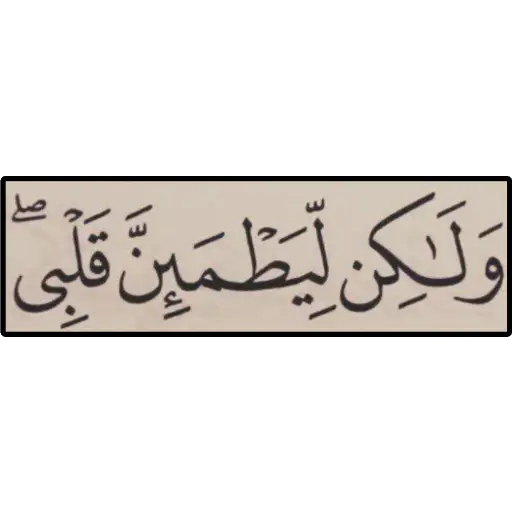 وَلَٰكِن لِّيَطْمَئِنَّ قَلْبِى ۖ